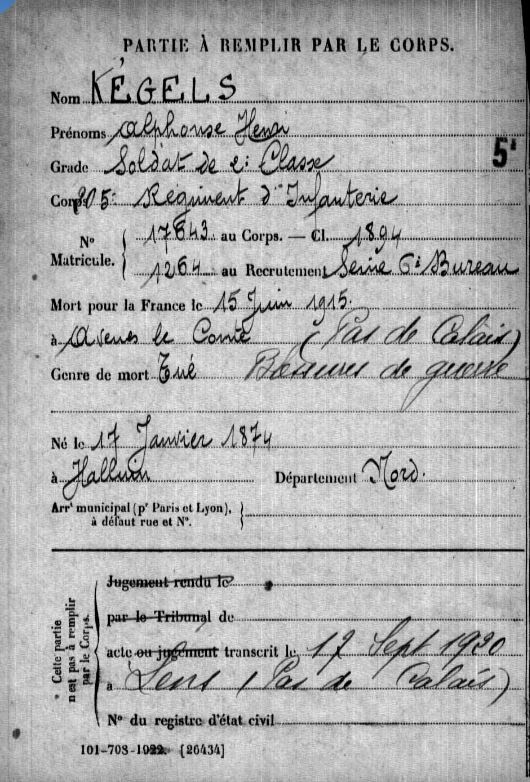 PARTIE À REMPLIR PAR LE CORPS.
Nom KÉGELS
Prénoms Alphonse Henri
5e
Grade Soldat de 2e Classe
Corps 205e Régiment d'Infanterie
No Matricule. { 17643 au Corps. — Cl. 1894
1264 au Recrutement Seine 6e Bureau
Mort pour la France le 15 Juin 1915.
à Avenes le Comte (Pas de Calais)
Genre de mort Tué Blessures de guerre
Né le 17 Janvier 1874
à Halluin Département Nord.
Arrt municipal (pr Paris et Lyon),
à défaut rue et No.
* Cette partie n'est pas à remplir par le Corps.
Jugement rendu le
par le Tribunal de
acte ou jugement transcrit le 12 Sept 1920
à Lens (Pas de Calais)
No du registre d'état civil
101-708-1922. [26434]